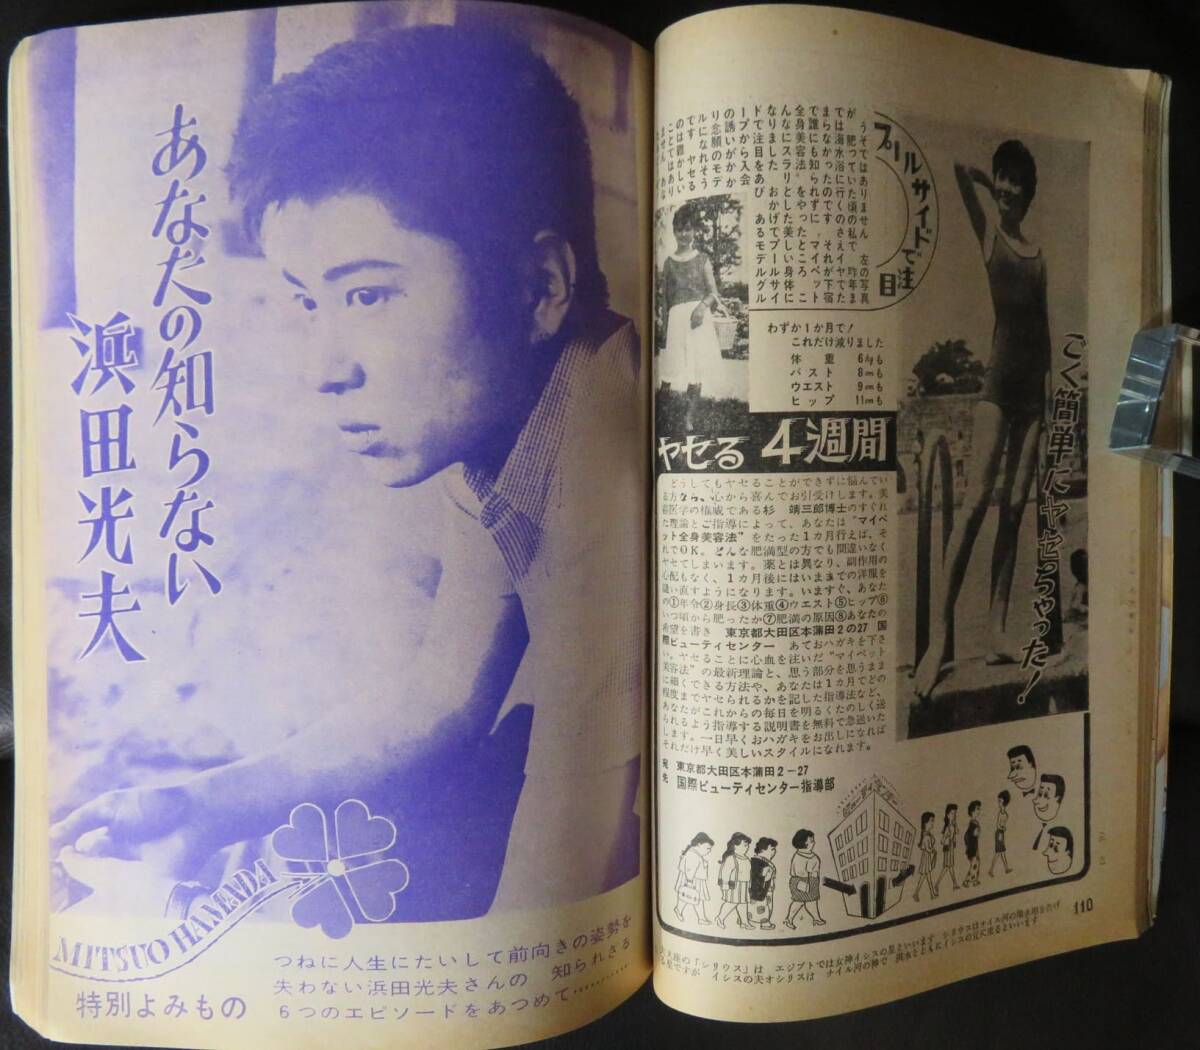 あなたの知らない
浜田光夫
MITSUO HAMADA
特別よみもの
つねに人生にたいして前向きの姿勢を
失わない浜田光夫さんの 知られざる
6つのエピソードをあつめて………
ごく簡単にヤセちゃった！
プールサイドで注目
うそではありません 左の写真
が 肥っていた頃の私で 昨年ま
では海水浴に行くのさえイヤでた
まらなかったのです それが下宿
で誰にも知られずに マイペット
全身美容法"をやったところ こ
んなにスラリとした美しい身体に
なりました おかげでプールサイ
ドで注目をあび あるモデルグル
ープから入会
の誘いがかか
り念願のモデ
ルになれそう
です ヤセる
のは難かしい
ことではあり
わずか1か月で！
これだけ減りました
体 重 6kgも
バスト 8cmも
ウエスト 9cmも
ヒップ 11cmも
ヤセる 4週間
どうしてもヤセることができずに悩んでい
る方なら、心から喜んでお引受けします。美
容医学の権威である杉 靖三郎博士のすぐれ
た理論とご指導によって、あなたは"マイペ
ット全身美容法"をたった1カ月行えば、そ
れでOK。どんな肥満型の方でも間違いなく
ヤセてしまいます。薬とは異なり、副作用の
心配もなく、1カ月後にはいままでの洋服を
縫い直すようになります。いますぐ、あなた
の①年令②身長③体重④ウエスト⑤ヒップ⑥
いつ頃から肥ったか⑦肥満の原因⑧あなたの
希望を書き 東京都大田区本蒲田2の27 国
際ビューティセンター あておハガキを下さ
い。ヤセることに心血を注いだ"マイペット
美容法"の最新理論と、思う部分を思うまま
に細くできる方法や、あなたは1カ月でどの
程度までヤセられるかを記した指導法など、
あなたがこれからの毎日を明るくたのしく送
られるよう指導する説明書を無料で急送いた
します。一日早くおハガキをお出しになれば
それだけ早く美しいスタイルになれます。
宛先 東京都大田区本蒲田2－27
国際ビューティセンター指導部
110
大座の「シリウス」は エジプトでは女神イシスの星といいます シリウスはナイル河の
星ですが イシスの夫オシリスは ナイル河の神で 洪水とともにイシスの元に来るといいます